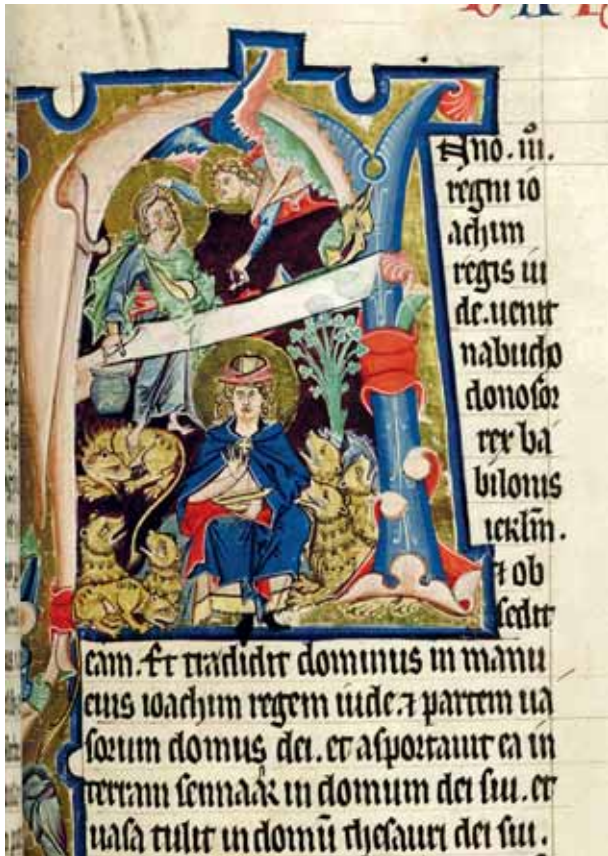 DAN
Anno . iii .
regni io
achim
regis iu
de . uenit
nabucho
donosor
rex ba
bilonis
ierl̄m .
⁊ ob
sedit
eam . Et tradidit dominus in manu
eius ioachim regem iude . ⁊ partem ua
sorum domus dei . et asportauit ea in
terram sennaar in domum dei sui . et
uasa tulit in domū thesauri dei sui .